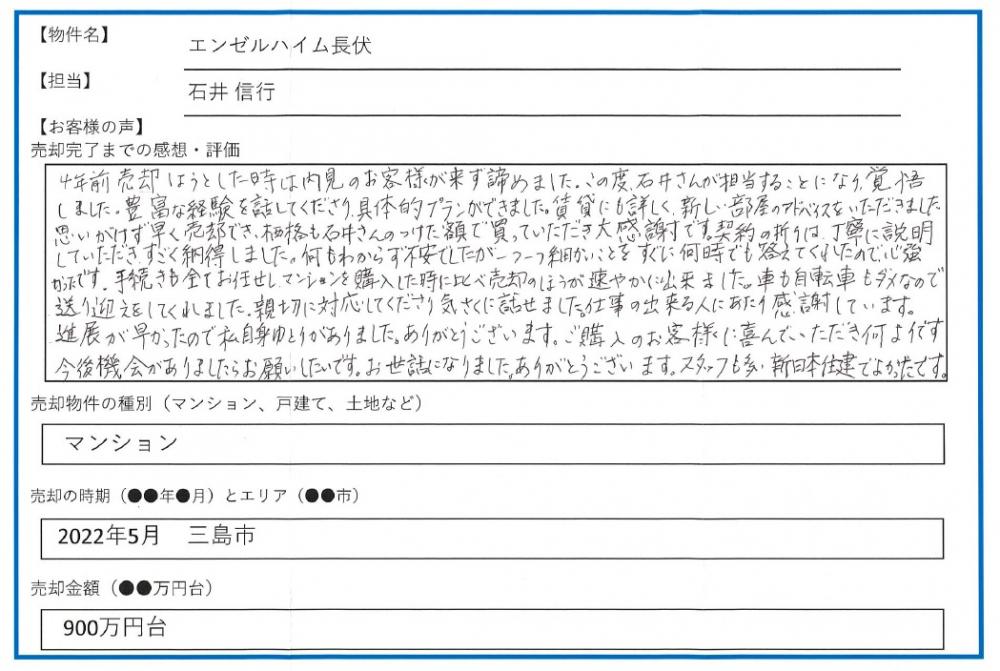 【物件名】
エンゼルハイム長伏
【担当】
石井 信行
【お客様の声】
売却完了までの感想・評価
4年前売却しようとした時は内見のお客様が来ず諦めました。この度、石井さんが担当することになり、覚悟
しました。豊富な経験を話してくださり、具体的プランができました。賃貸にも詳しく、新しい部屋のアドバイスをいただきました
思いがけず早く売却でき、価格も石井さんのつけた額で買っていただき大感謝です。契約の折りは、丁寧に説明
していただき、すごく納得しました。何もわからず不安でしたが一つ一つ細かいことをすぐに何時でも答えてくれたので、心強
かったです。手続きも全てお任せし、マンションを購入した時に比べ売却のほうが速やかに出来ました。車も自転車もダメなので
送り迎えをしてくれました。親切に対応してくださり気さくに話せました。仕事の出来る人にあたり感謝しています。
進展が早かったので私自身ゆとりがありました。ありがとうございます。ご購入のお客様に喜んでいただき何よりです
今後機会がありましたらお願いしたいです。お世話になりました。ありがとうございます。スタッフも多い新日本住建でよかったです。
売却物件の種別（マンション、戸建て、土地など）
マンション
売却の時期（●●年●月）とエリア（●●市）
2022年5月 三島市
売却金額（●●万円台）
900万円台